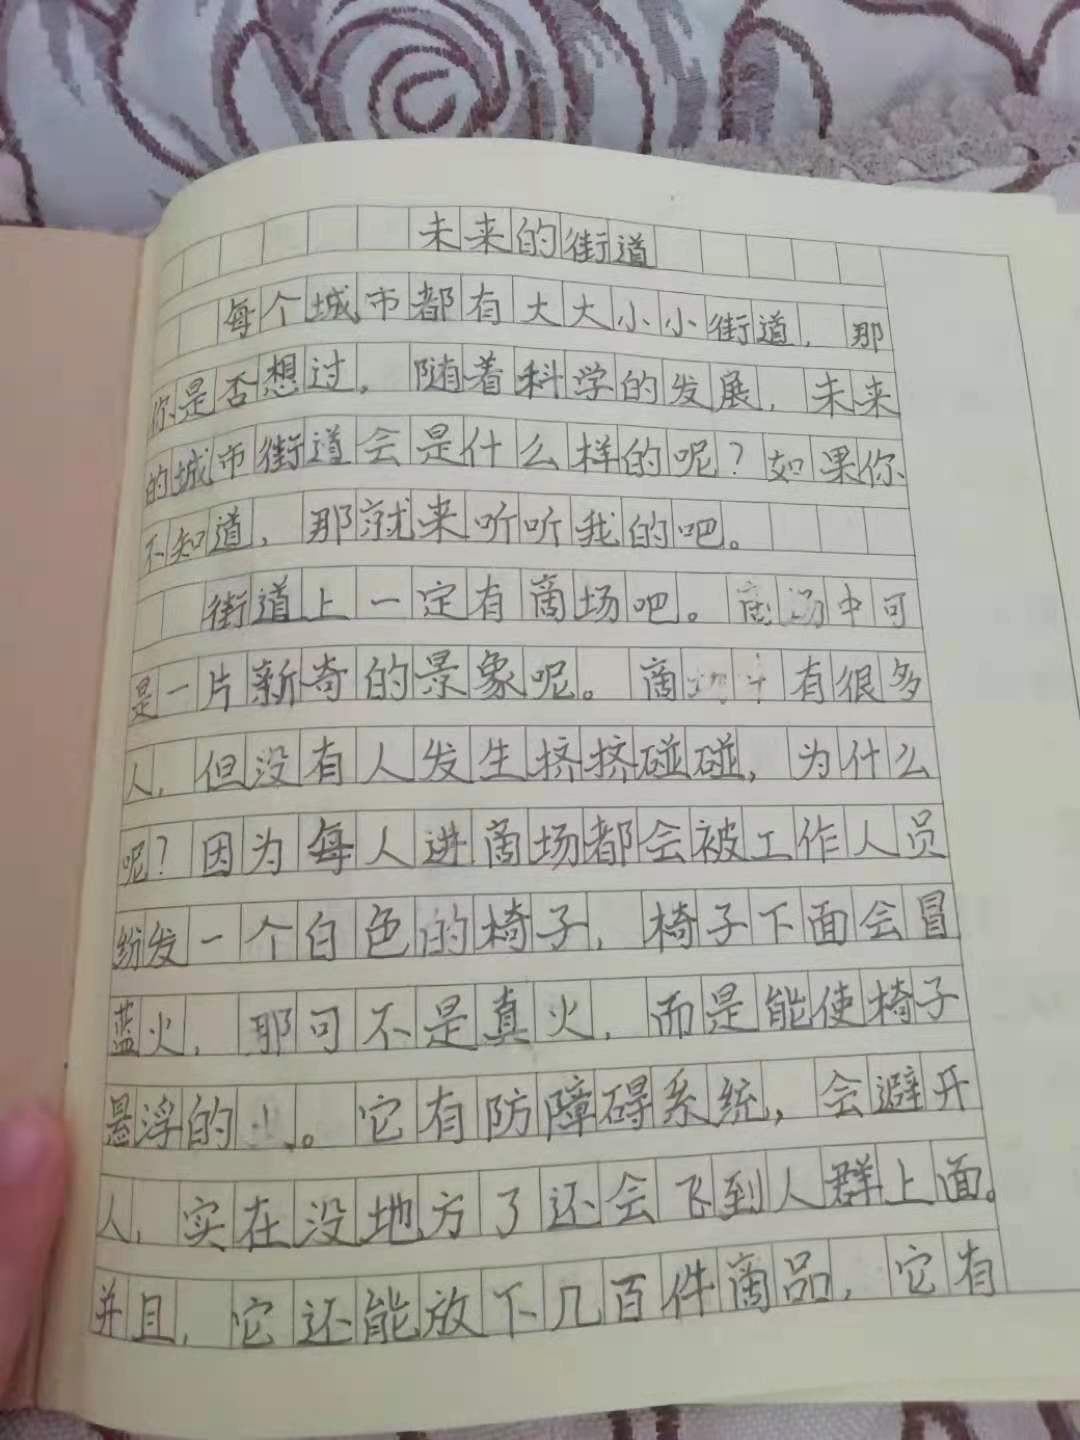 未来的街道
每个城市都有大大小小街道，那
你是否想过，随着科学的发展，未来
的城市街道会是什么样的呢？如果你
不知道，那就来听听我的吧。
街道上一定有商场吧。商场中可
是一片新奇的景象呢。商场中有很多
人，但没有人发生挤挤碰碰，为什么
呢？因为每人进商场都会被工作人员
纷发一个白色的椅子，椅子下面会冒
蓝火，那可不是真火，而是能使椅子
悬浮的。它有防障碍系统，会避开
人，实在没地方了还会飞到人群上面。
并且，它还能放下几百件商品，它有